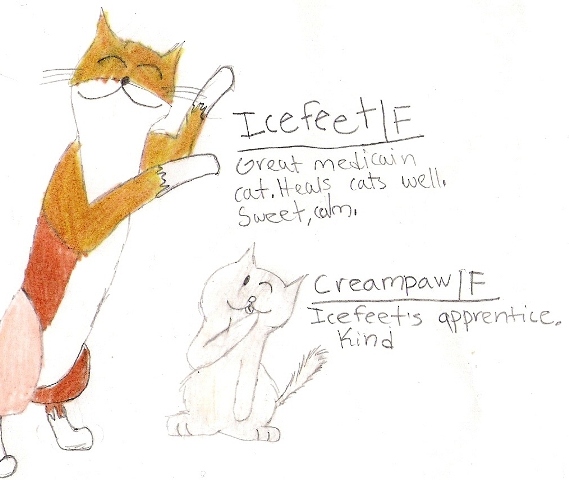 Icefeet/F
Great medicain
cat. Heals cats well.
Sweet, calm.
Creampaw/F
Icefeet's apprentice.
Kind